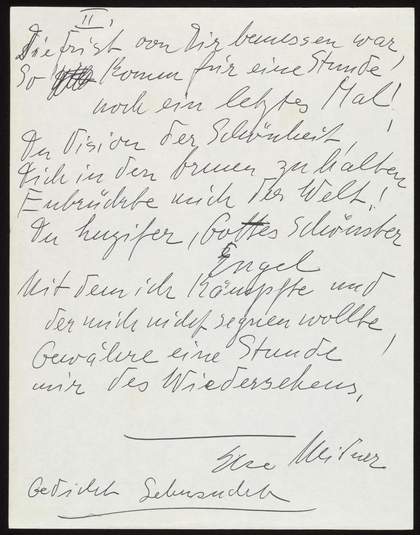 II
Die Frist von Dir bemessen war,
So komm für eine Stunde
noch ein letztes Mal!
Du Vision der Schönheit,
Dich in den Armen zu halten
Entrückte mich der Welt!
Du Luzifer, Gottes Schönster
Engel
Mit dem ich kämpfte und
der mich nicht segnen wollte
Gewähre eine Stunde!
mir des Wiedersehens,
Else Meidner
Gedicht Sehnsucht